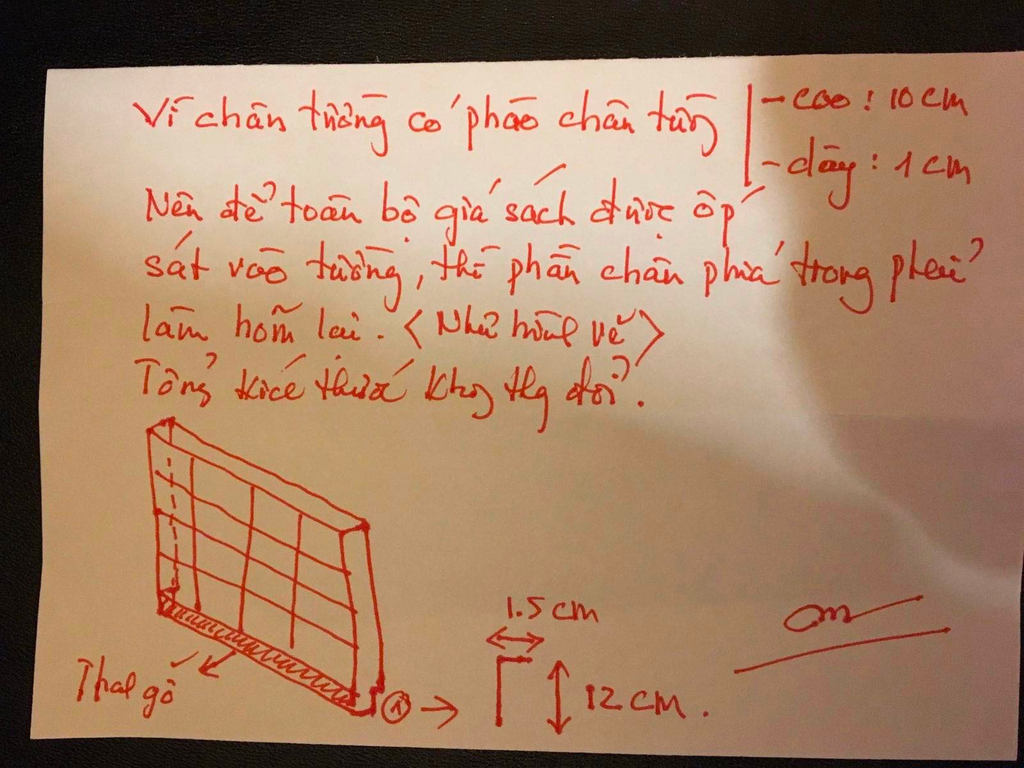 Vì chân tường có phào chân tường
- cao : 10 cm
- dày : 1 cm
Nên để toàn bộ giá sách được ốp
sát vào tường, thì phần chân phía trong phải
làm hõm lại. <Như hình vẽ>
Tổng kích thước không thay đổi.
1.5 cm
12 cm.
Thanh gỗ
1